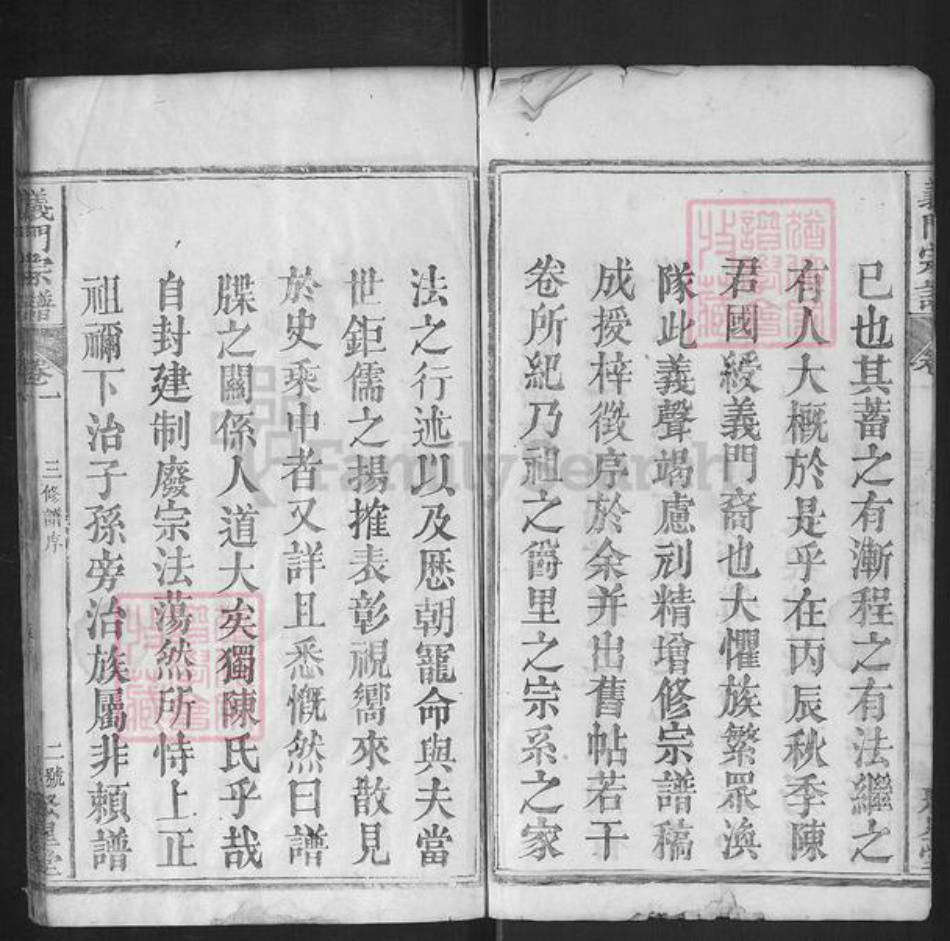 已也其蓄之有漸程之有法繼之
有人大概於是乎在丙辰秋季陳
君國綬義門裔也大懼族繁眾渙
隊此義聲竭慮刓精增修宗譜稿
成授梓徵序於余并出舊帖若干
卷所紀乃祖之爵里之宗系之家
法之行述以及歷朝寵命與夫當
世鉅儒之揚搉表彰視嚮來散見
於史乘中者又詳且悉慨然曰譜
牒之關係人道大矣獨陳氏乎哉
自封建制廢宗法蕩然所恃上正
祖禰下治子孫旁治族屬非賴譜
義門宗譜
卷一
三修譜序
二號
FamilySearch
譜學會
收藏